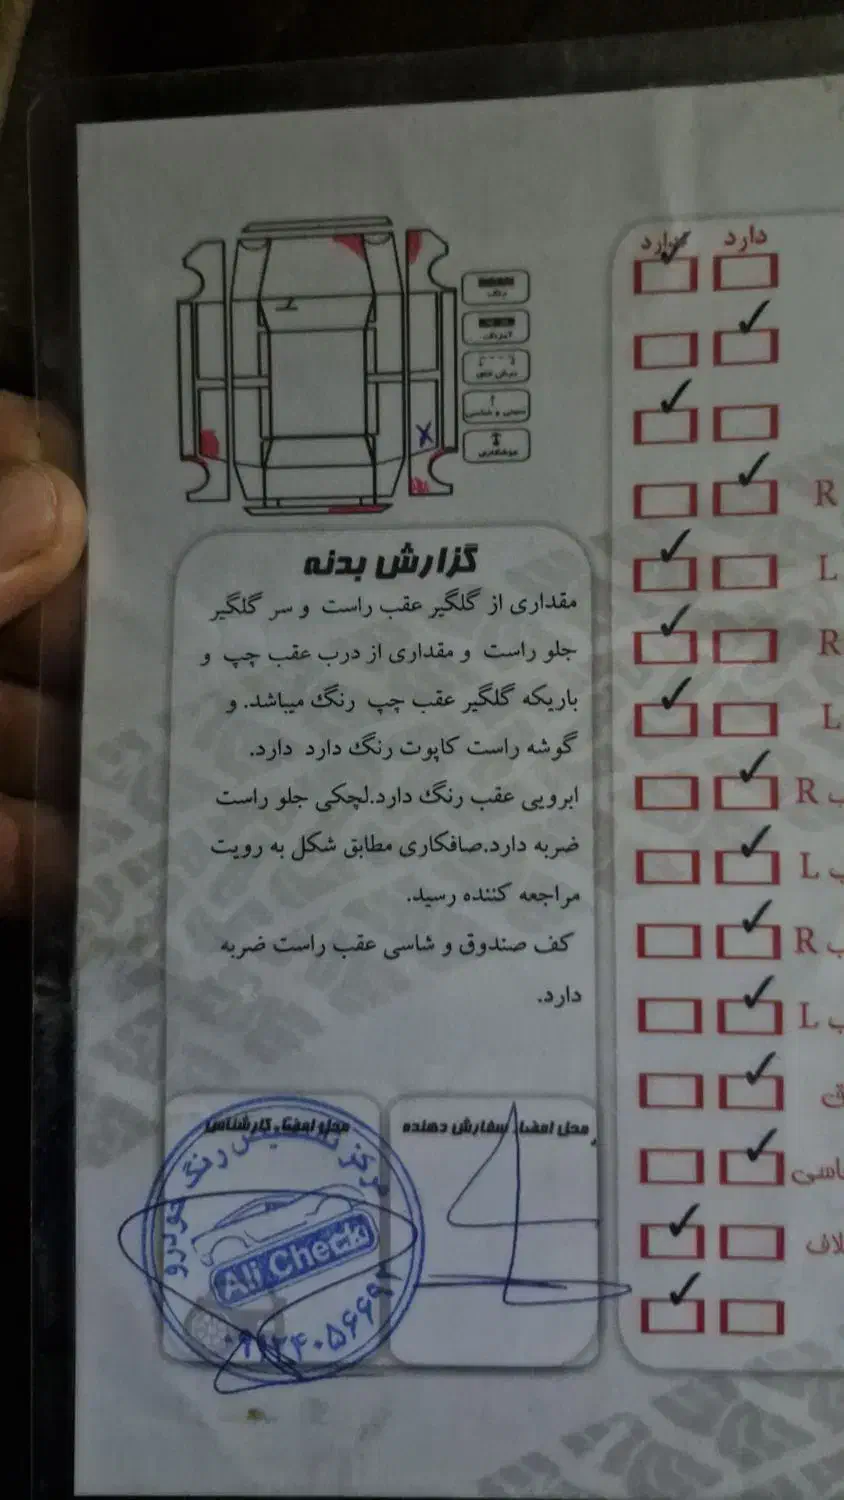 دارد ندارد
رنگ
R
L
R
L
ب R
ب L
ب R
ب L
ق
اسی
لاف
گزارش بدنه
مقداری از گلگیر عقب راست و سر گلگیر
جلو راست و مقداری از درب عقب چپ و
باریکه گلگیر عقب چپ رنگ میباشد. و
گوشه راست کاپوت رنگ دارد دارد.
ابرویی عقب رنگ دارد.لچکی جلو راست
ضربه دارد.صافکاری مطابق شکل به رویت
مراجعه کننده رسید.
کف صندوق و شاسی عقب راست ضربه
دارد.
محل امضاء سفارش دهنده
محل امضاء کارشناس
مرکز تشخیص رنگ خودرو
Ali Check